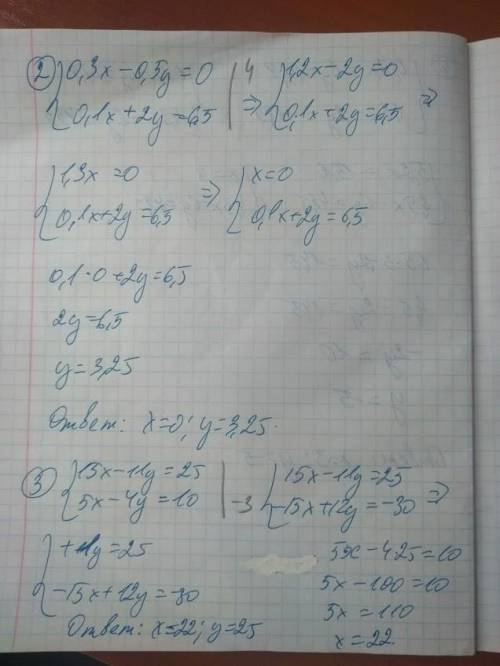 ② { 0,3x - 0,5y = 0 | 4 { 1,2x - 2y = 0
0,1x + 2y = 6,5 | ⇒ 0,1x + 2y = 6,5 ⇒
{ 1,3x = 0 ⇒ { x = 0
0,1x + 2y = 6,5 0,1x + 2y = 6,5
0,1 · 0 + 2y = 6,5
2y = 6,5
y = 3,25
Ответ: x = 0; y = 3,25.
③ { 15x - 11y = 25 | -3 { 15x - 11y = 25
5x - 4y = 10 | -15x + 12y = -30 ⇒
{ +1y = 25
-15x + 12y = -30
5x - 4·25 = 10
5x - 100 = 10
5x = 110
x = 22
Ответ: x = 22; y = 25